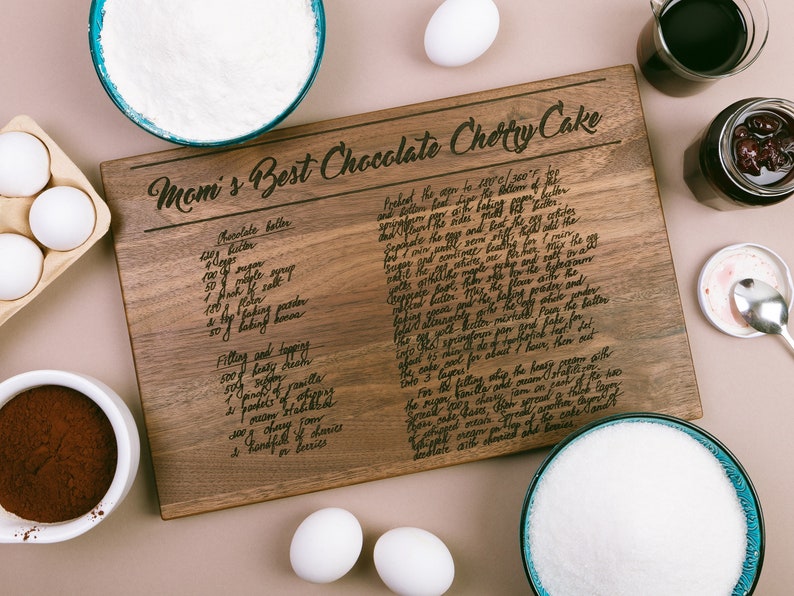 Mom's Best Chocolate Cherry Cake
Chocolate batter
120g butter
4 eggs
100g sugar
50g maple syrup
1 pinch of salt
150g flour
2 tsp baking powder
50g baking cocoa
Filling and topping
500g heavy cream
50g sugar
1 pinch vanilla
2 packets of whipping
cream stabilizer
200g cherry jam
2 handfull of cherries
or berries
Preheat the oven to 180°C/360°F top
and bottom heat. Line the bottom of the
springform pan with baking paper, butter
and flour the sides. Melt the butter.
Separate the eggs and beat the egg whites
for 1 minute until semi stiff, then add the
sugar and continue beating for 1 min
until the egg whites are firmer. Mix the egg
yolks with the maple syrup and salt in a
separate bowl, then stir in the lukewarm
melted butter. Mix the flour with the
baking cocoa and the baking powder and
add alternately with the egg white powder
the egg yolk-butter mixture. Pour the batter
into the springform pan and bake for
about 45 min do a toothstick test. Let
the cake cool for about 1 hour, then cut
into 3 layers!
For the filling whip the heavy cream with
the sugar, vanilla and cream stabilizer.
Spread 100g cherry jam on each of the two
bottom cake bases, then spread a thick layer
of whipped cream. Spread another layer of
whipped cream on top of the cake and
decorate with cherries and berries.